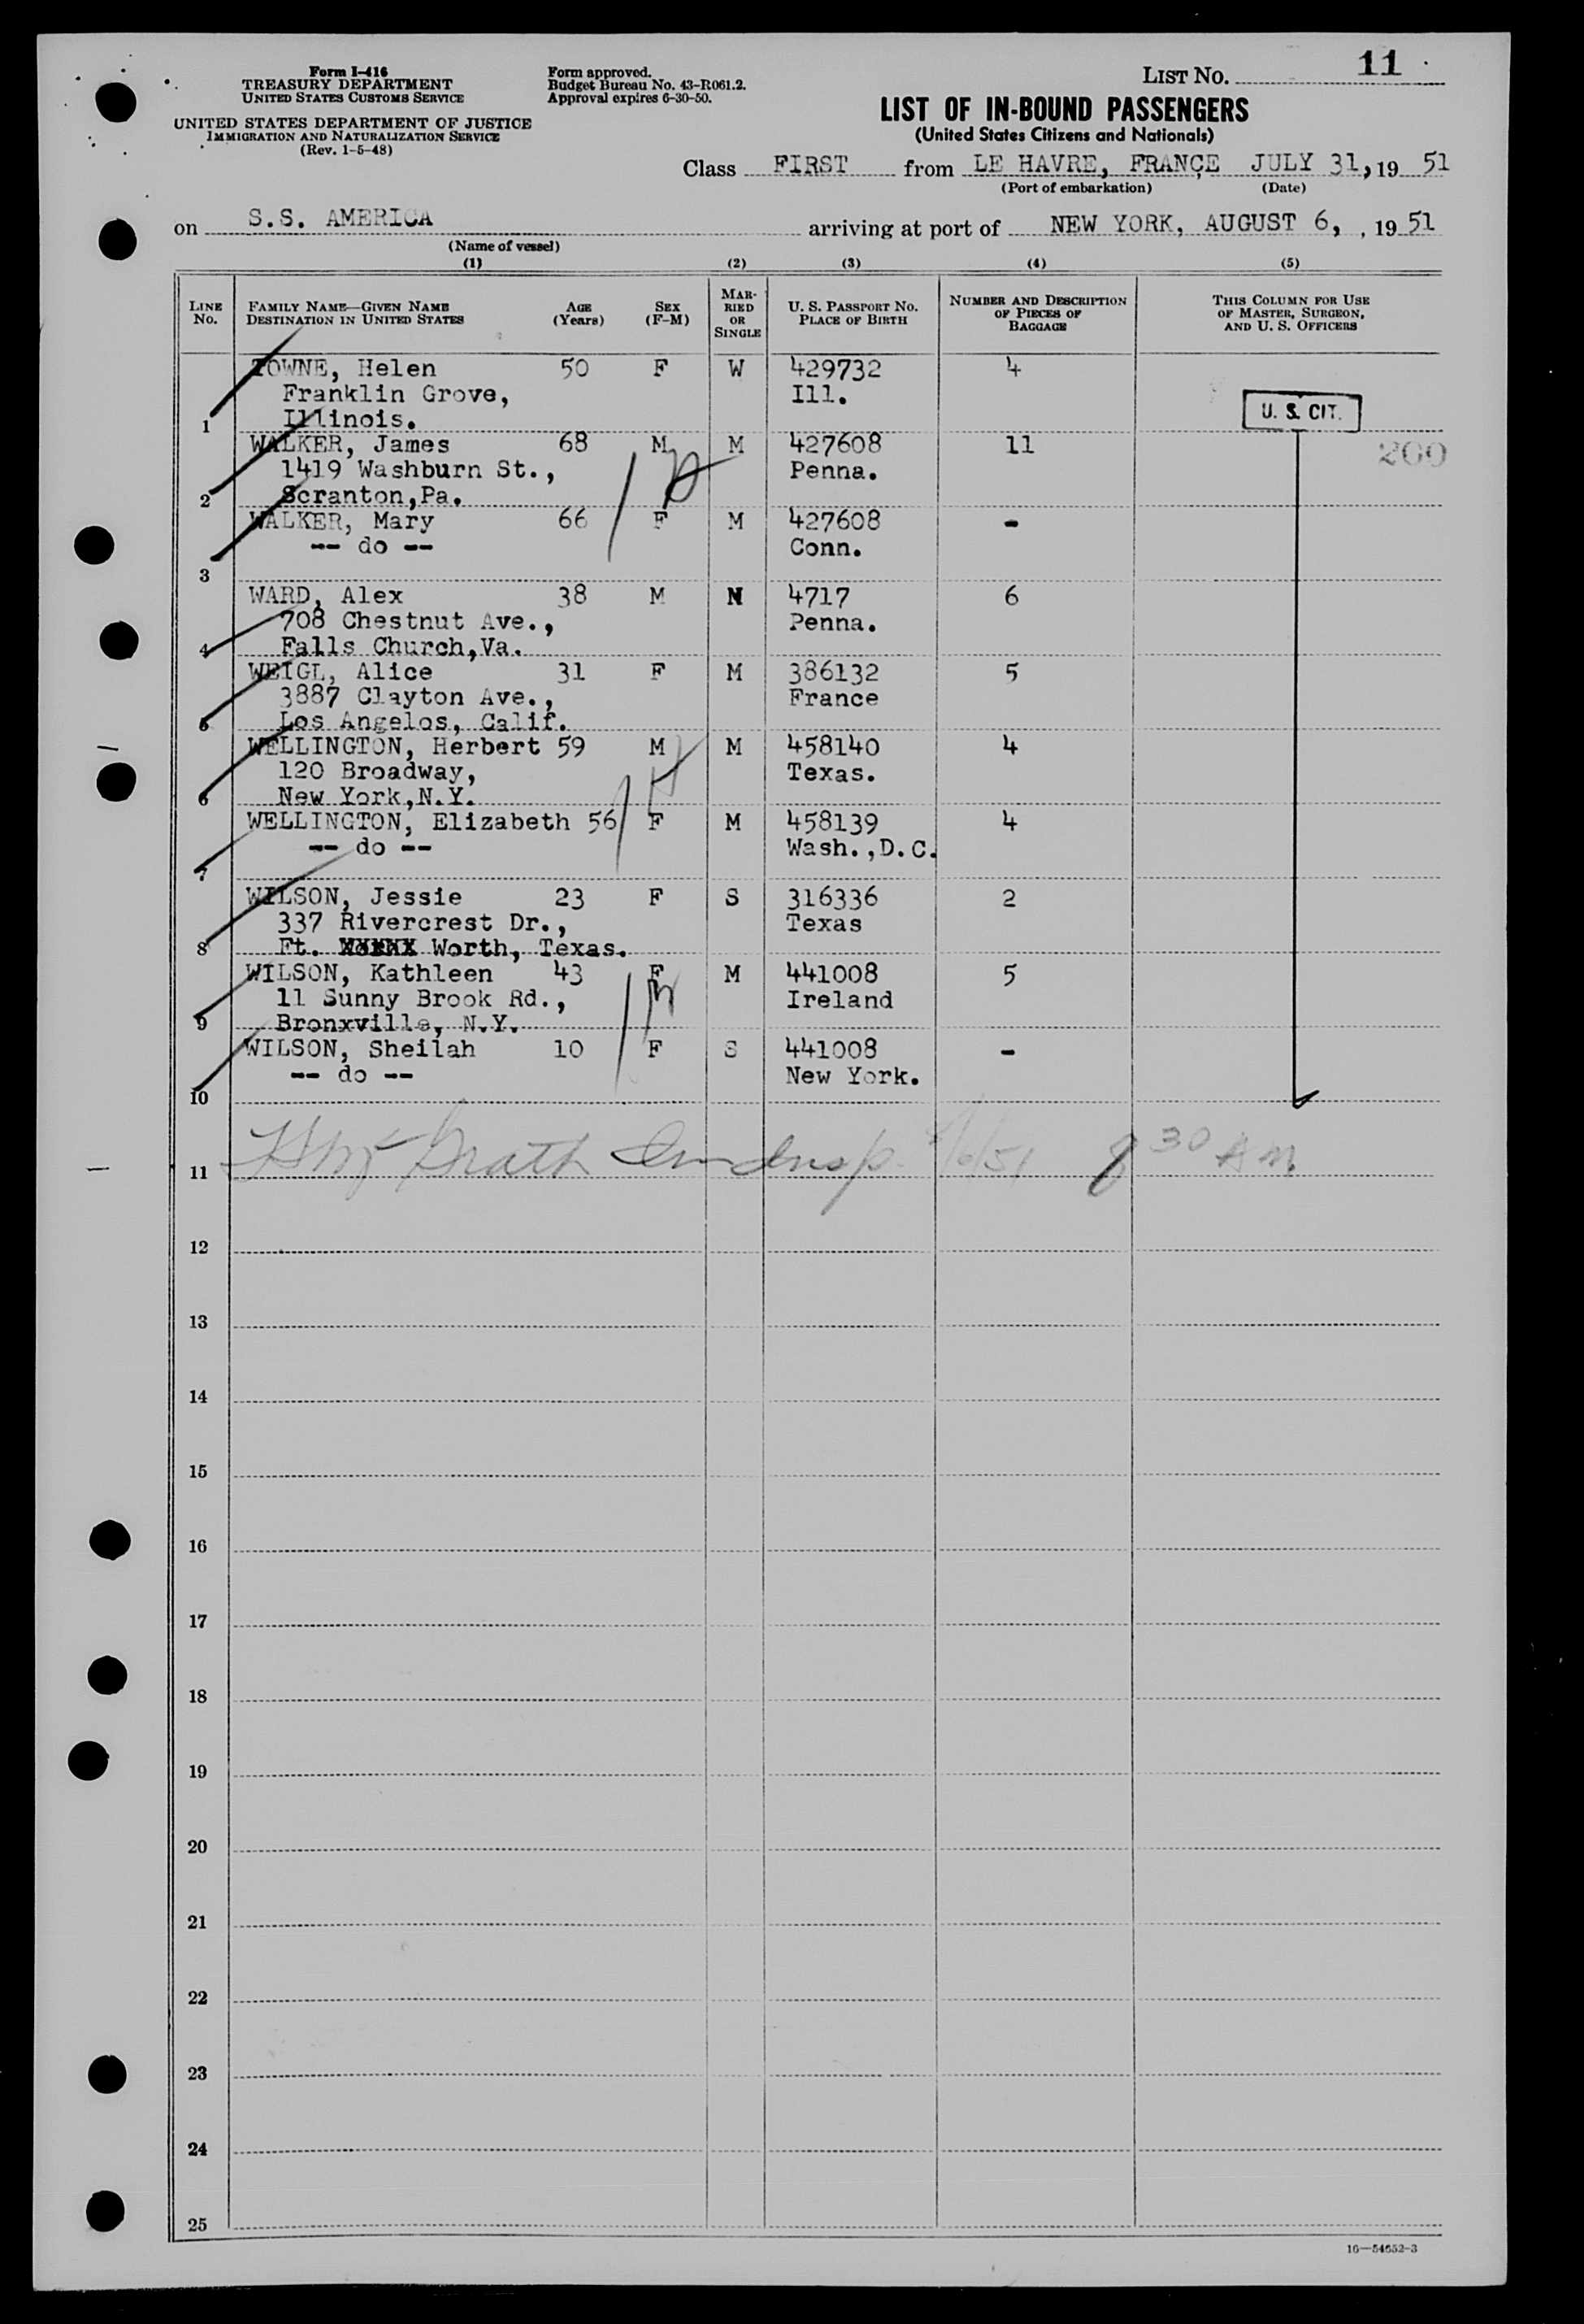 Form I-416
TREASURY DEPARTMENT
UNITED STATES CUSTOMS SERVICE
UNITED STATES DEPARTMENT OF JUSTICE
IMMIGRATION AND NATURALIZATION SERVICE
(Rev. 1-5-48)
Form approved.
Budget Bureau No. 43-R061.2.
Approval expires 6-30-50.
LIST NO. 11
LIST OF IN-BOUND PASSENGERS
(United States Citizens and Nationals)
Class FIRST from LE HAVRE, FRANCE JULY 31, 19 51
(Port of embarkation) (Date)
on S.S. AMERICA arriving at port of NEW YORK, AUGUST 6, , 19 51
(Name of vessel)
(1) (2) (3) (4) (5)
LINE No. FAMILY NAME—GIVEN NAME DESTINATION IN UNITED STATES AGE (Years) SEX (F-M) MARRIED OR SINGLE U. S. PASSPORT NO. PLACE OF BIRTH NUMBER AND DESCRIPTION OF PIECES OF BAGGAGE THIS COLUMN FOR USE OF MASTER, SURGEON, AND U. S. OFFICERS
TOWNE, Helen 50 F W 429732 4
Franklin Grove, Ill.
1 Illinois. U. S. CIT.
WALKER, James 68 M M 427608 11 200
1419 Washburn St., Penna.
2 Scranton,Pa.
WALKER, Mary 66 F M 427608 -
-- do -- Conn.
3
WARD, Alex 38 M M 4717 6
708 Chestnut Ave., Penna.
4 Falls Church,Va.
WEIGL, Alice 31 F M 386132 5
3887 Clayton Ave., France
5 Los Angelos, Calif.
WELLINGTON, Herbert 59 M M 458140 4
120 Broadway, Texas.
6 New York,N.Y.
WELLINGTON, Elizabeth 56 F M 458139 4
-- do -- Wash.,D.C.
7
WILSON, Jessie 23 F S 316336 2
337 Rivercrest Dr., Texas
8 Ft. Worth, Texas.
WILSON, Kathleen 43 F M 441008 5
11 Sunny Brook Rd., Ireland
9 Bronxville, N.Y.
WILSON, Sheilah 10 F S 441008 -
-- do -- New York.
10
11 Grath Im Insp. 8/6/51 8 30 AM
12
13
14
15
16
17
18
19
20
21
22
23
24
25
16—54652-3